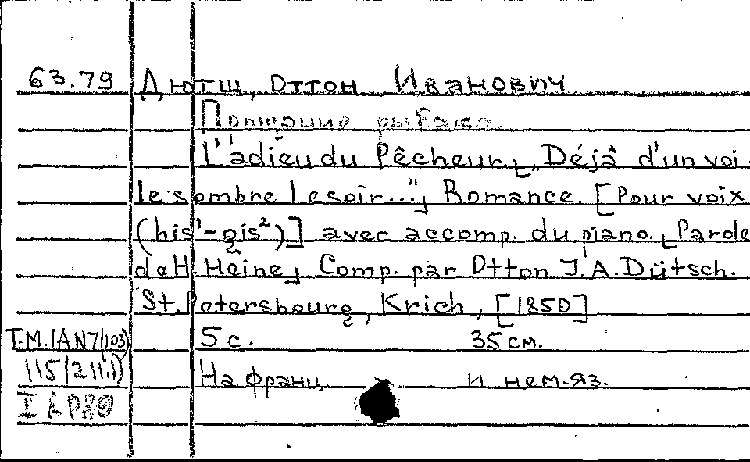 63.79 Дютш, Оттон Иванович
Прощание рыбака.
L'adieu du Pêcheur „Déjâ d'un voi-
le sombre le soir..." Romance. [Pour voix
(his¹-gis²)] avec accomp. du piano. Parole
de H. Heine, Comp. par Otton J.A. Dütsch.
St. Petersbourg, Krich, [1850]
Т.М.(AN7/103) 5 с. 35 см.
На франц. и нем. яз.